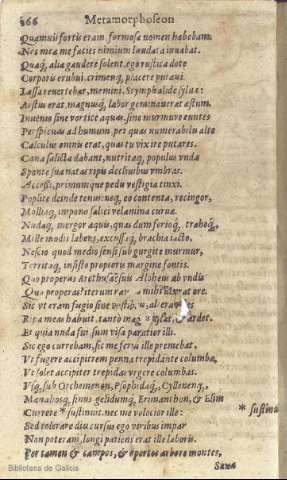 166 Metamorphoseon
Quamuis fortis eram, formosæ nomen habebam.
Nec mea me facies nimium laudata iuuabat.
Quaq́, aliæ gaudere solent, ego rustica dote
Corporis erubui, crimenq́, placere putaui.
Lassa reuertebar, memini, Stymphalide sylua:
Aestus erat, magnumq́, labor geminauerat æstum.
Inuenio sine vortice aquas, sine murmure euntes
Perspicuas ad humum, per quas numerabilis alte
Calculus omnis erat, quas tu vix ire putares.
Cana salicta dabant, nutritaq́, populus vnda
Sponte sua natas ripis decliuibus vmbras.
Accessi, primumque pedis vestigia tinxi.
Poplite deinde tenus: neq́, eo contenta, recingor,
Molliaq́, impono salici velamina curuæ.
Nudaq́, mergor aquis, quas dum ferioq́, trahoq́,
Mille modis labens, excussaq́, brachia iacto,
Nescio quod medio sensi sub gurgite murmur,
Territaq́, insisto propioris margine fontis.
Quo properas Arethusa? suis Alpheus ab vndis
Quo properas? iterum rauco mihi dixerat ore.
Sic vt eram fugio sine vestibus, altera
Ripa meas habuit, tantò magis instat, & ardet.
Et quia nuda fui, sum visa paratior illi.
Sic ego currebam, sic me ferus ille premebat.
Vt fugere accipitrem penna trepidante columbæ,
Vt solet accipiter trepidas vrgere columbas.
Vsq́, sub Orchomenon, Psophidaq́, Cylleneq́,
Mænaliosq́, sinus, gelidumq́, Erimanthon, & Elim
Currere * sustinui, nec me velocior ille:
Sed tolerare diu cursus ego viribus impar
Non poteram, longi patiens erat ille laboris.
Per tamen & campos, & opertos arbore montes,
* sustinu
Saxa
Biblioteca de Galicia